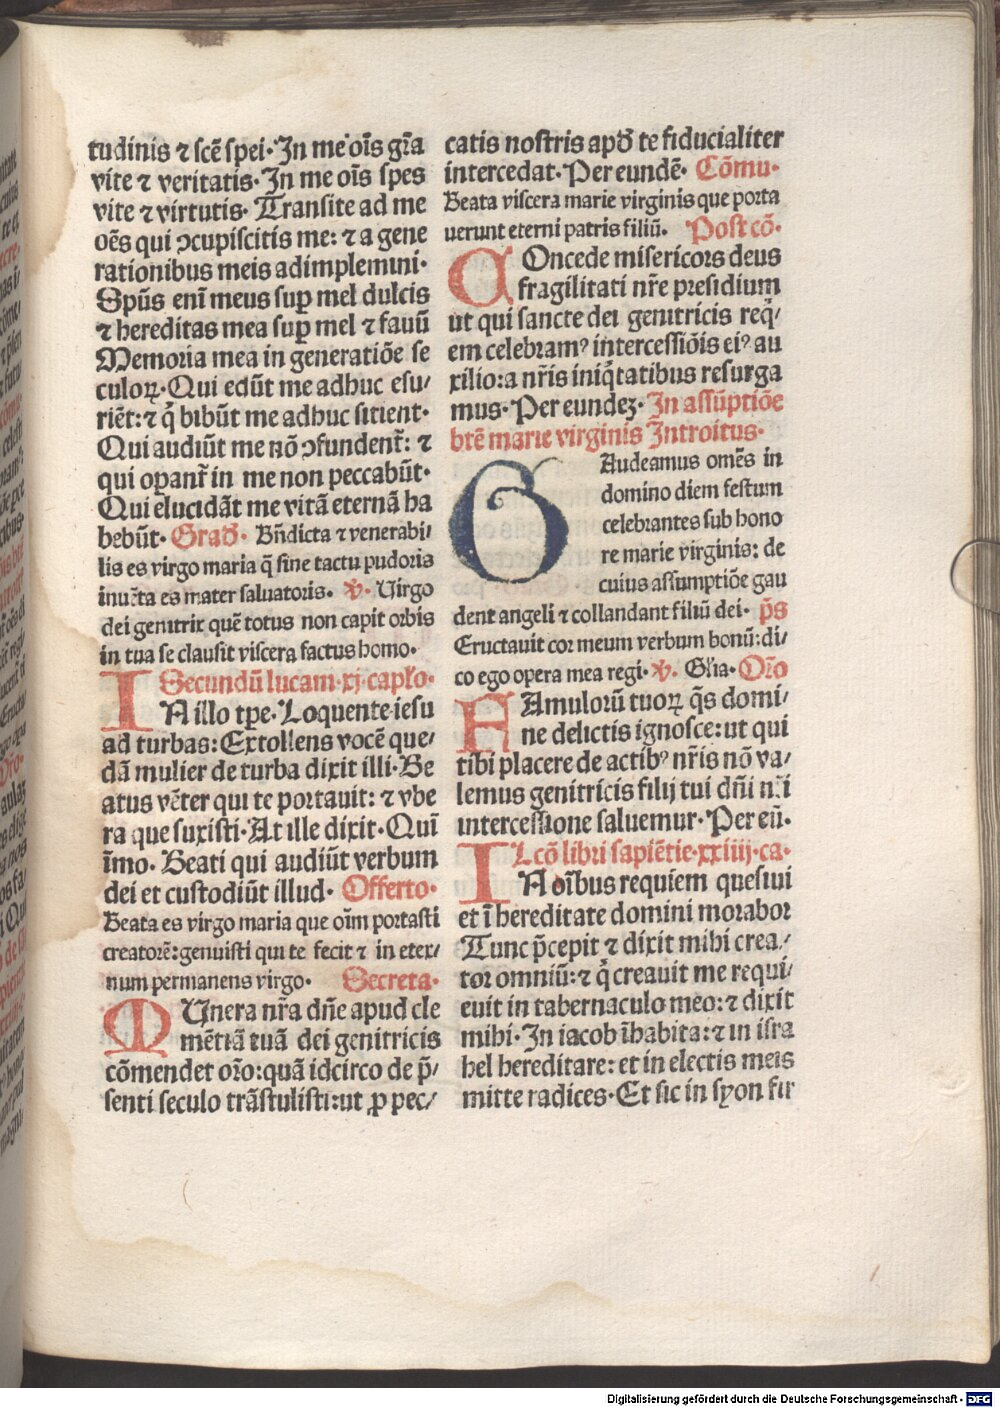 tudinis ⁊ scē spei· In me oīs gr̄a
vite ⁊ veritatis· In me oīs spes
vite ⁊ virtutis· Transite ad me
oēs qui ꝯcupiscitis me: ⁊ a gene
rationibus meis adimplemini·
Spūs enī meus suꝑ mel dulcis
⁊ hereditas mea suꝑ mel ⁊ fauū
Memoria mea in generatiōe se
culoꝝ· Qui edūt me adhuc esu/
riēt: ⁊ q̇ bibūt me adhuc sitient·
Qui audiūt me nō ꝯfundent̄: ⁊
qui oꝑant̄ in me non peccabūt·
Qui elucidāt me vitā eternā ha
bebūt· Grad̄· Bn̄dicta ⁊ venerabi/
lis es virgo maria q̄ sine tactu pudoris
inuēta es mater saluatoris· ℣· Uirgo
dei genitrix quē totus non capit orbis
in tua se clausit viscera factus homo·
Secundū lucam·xj·capl̄o·
IN illo tꝑe· Loquente iesu
ad turbas: Extollens vocē que/
dā mulier de turba dixit illi· Be
atus vēter qui te portauit: ⁊ vbe
ra que suxisti· At ille dixit· Quī
īmo· Beati qui audiūt verbum
dei et custodiūt illud· Offerto·
Beata es virgo maria que oīm portasti
creatorē: genuisti qui te fecit ⁊ in eter/
num permanens virgo· Secreta·
MUnera nr̄a dn̄e apud cle
mētiā tuā dei genitricis
cōmendet or̄o: quā idcirco de p̄/
senti seculo trāstulisti: ut ꝓ pec/
catis nostris apd̄ te fiducialiter
intercedat· Per eundē· Cōmu·
Beata viscera marie virginis que porta
uerunt eterni patris filiū· Post cō·
COncede misericors deus
fragilitati nr̄e presidium
ut qui sancte dei genitricis req̇/
em celebramꝰ intercessiōis eiꝰ au
xilio: a nr̄is iniq̇tatibus resurga
mus· Per eundeꝫ· In assūptiōe
btē marie virginis Introitus·
GAudeamus omēs in
domino diem festum
celebrantes sub hono
re marie virginis: de
cuius assumptiōe gau
dent angeli ⁊ collandant filiū dei· p̄s
Eructauit cor meum verbum bonū: di/
co ego opera mea regi· ℣· Gl̄ia· Or̄o
FAmulorū tuoꝝ q̄s domi/
ne delictis ignosce: ut qui
tibi placere de actibꝰ nr̄is nō va/
lemus genitricis filij tui dn̄i nr̄i
intercessione saluemur· Per eū·
Lcō libri sapiētie·xxiiij·ca·
IN oībus requiem quesiui
et ī hereditate domini morabor
Tunc p̄cepit ⁊ dixit mihi crea/
tor omniū: ⁊ q̇ creauit me requi/
euit in tabernaculo meo: ⁊ dixit
mihi· In iacob īhabita: ⁊ in isra
hel hereditare: et in electis meis
mitte radices· Et sic in syon fir
Digitalisierung gefördert durch die Deutsche Forschungsgemeinschaft - DFG